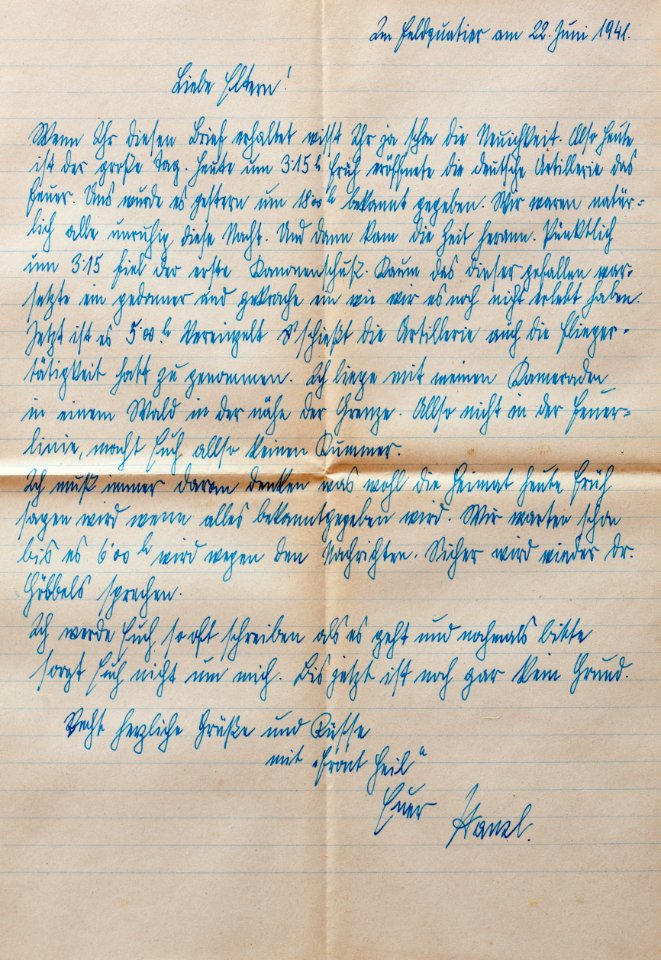 Im Feldquatier am 22. Juni 1941.
Liebe Eltern!
Wenn Ihr diesen Brief erhaltet wisst Ihr ja schon die Neuichkeit. Also heute
ist der große Tag. Heute um 3.15 h früh eröffnete die deutsche Artillerie das
Feuer. Uns wurde es gestern um 18 00 h bekannt gegeben. Wir waren natür-
lich alle unruhig diese Nacht. Und dann kam die Zeit herann. Pünktlich
um 3.15 fiel der erste Kanonenschuß. Kaum das dieser gefallen war-
setzte ein gedonner und gekrache ein wie wir es noch nicht erlebt haben.
Jetzt ist es 5 00 h Vereinzelt schießt die Artillerie auch die Flieger-
tätigkeit hatt zu genommen. Ich liege mit meinen Kameraden
in einem Wald in der nähe der Grenze. Allso nicht in der Feuer-
linie, macht Euch allso keinen Kummer.
Ich muß immer daran denken was wohl die Heimat heute früh
sagen wird wenn alles bekanntgegeben wird. Wir warten schon
bis es 6 00 h wird wegen den Nachrichten. Sicher wird wieder Dr.
Göbbels sprechen.
Ich werde Euch so oft schreiben als es geht und nochmals bitte
sorgt Euch nicht um mich. Bis jetzt ist noch gar kein Grund.
Recht herzliche Grüße und Küsse
mit „Front Heil"
Euer Hansl.